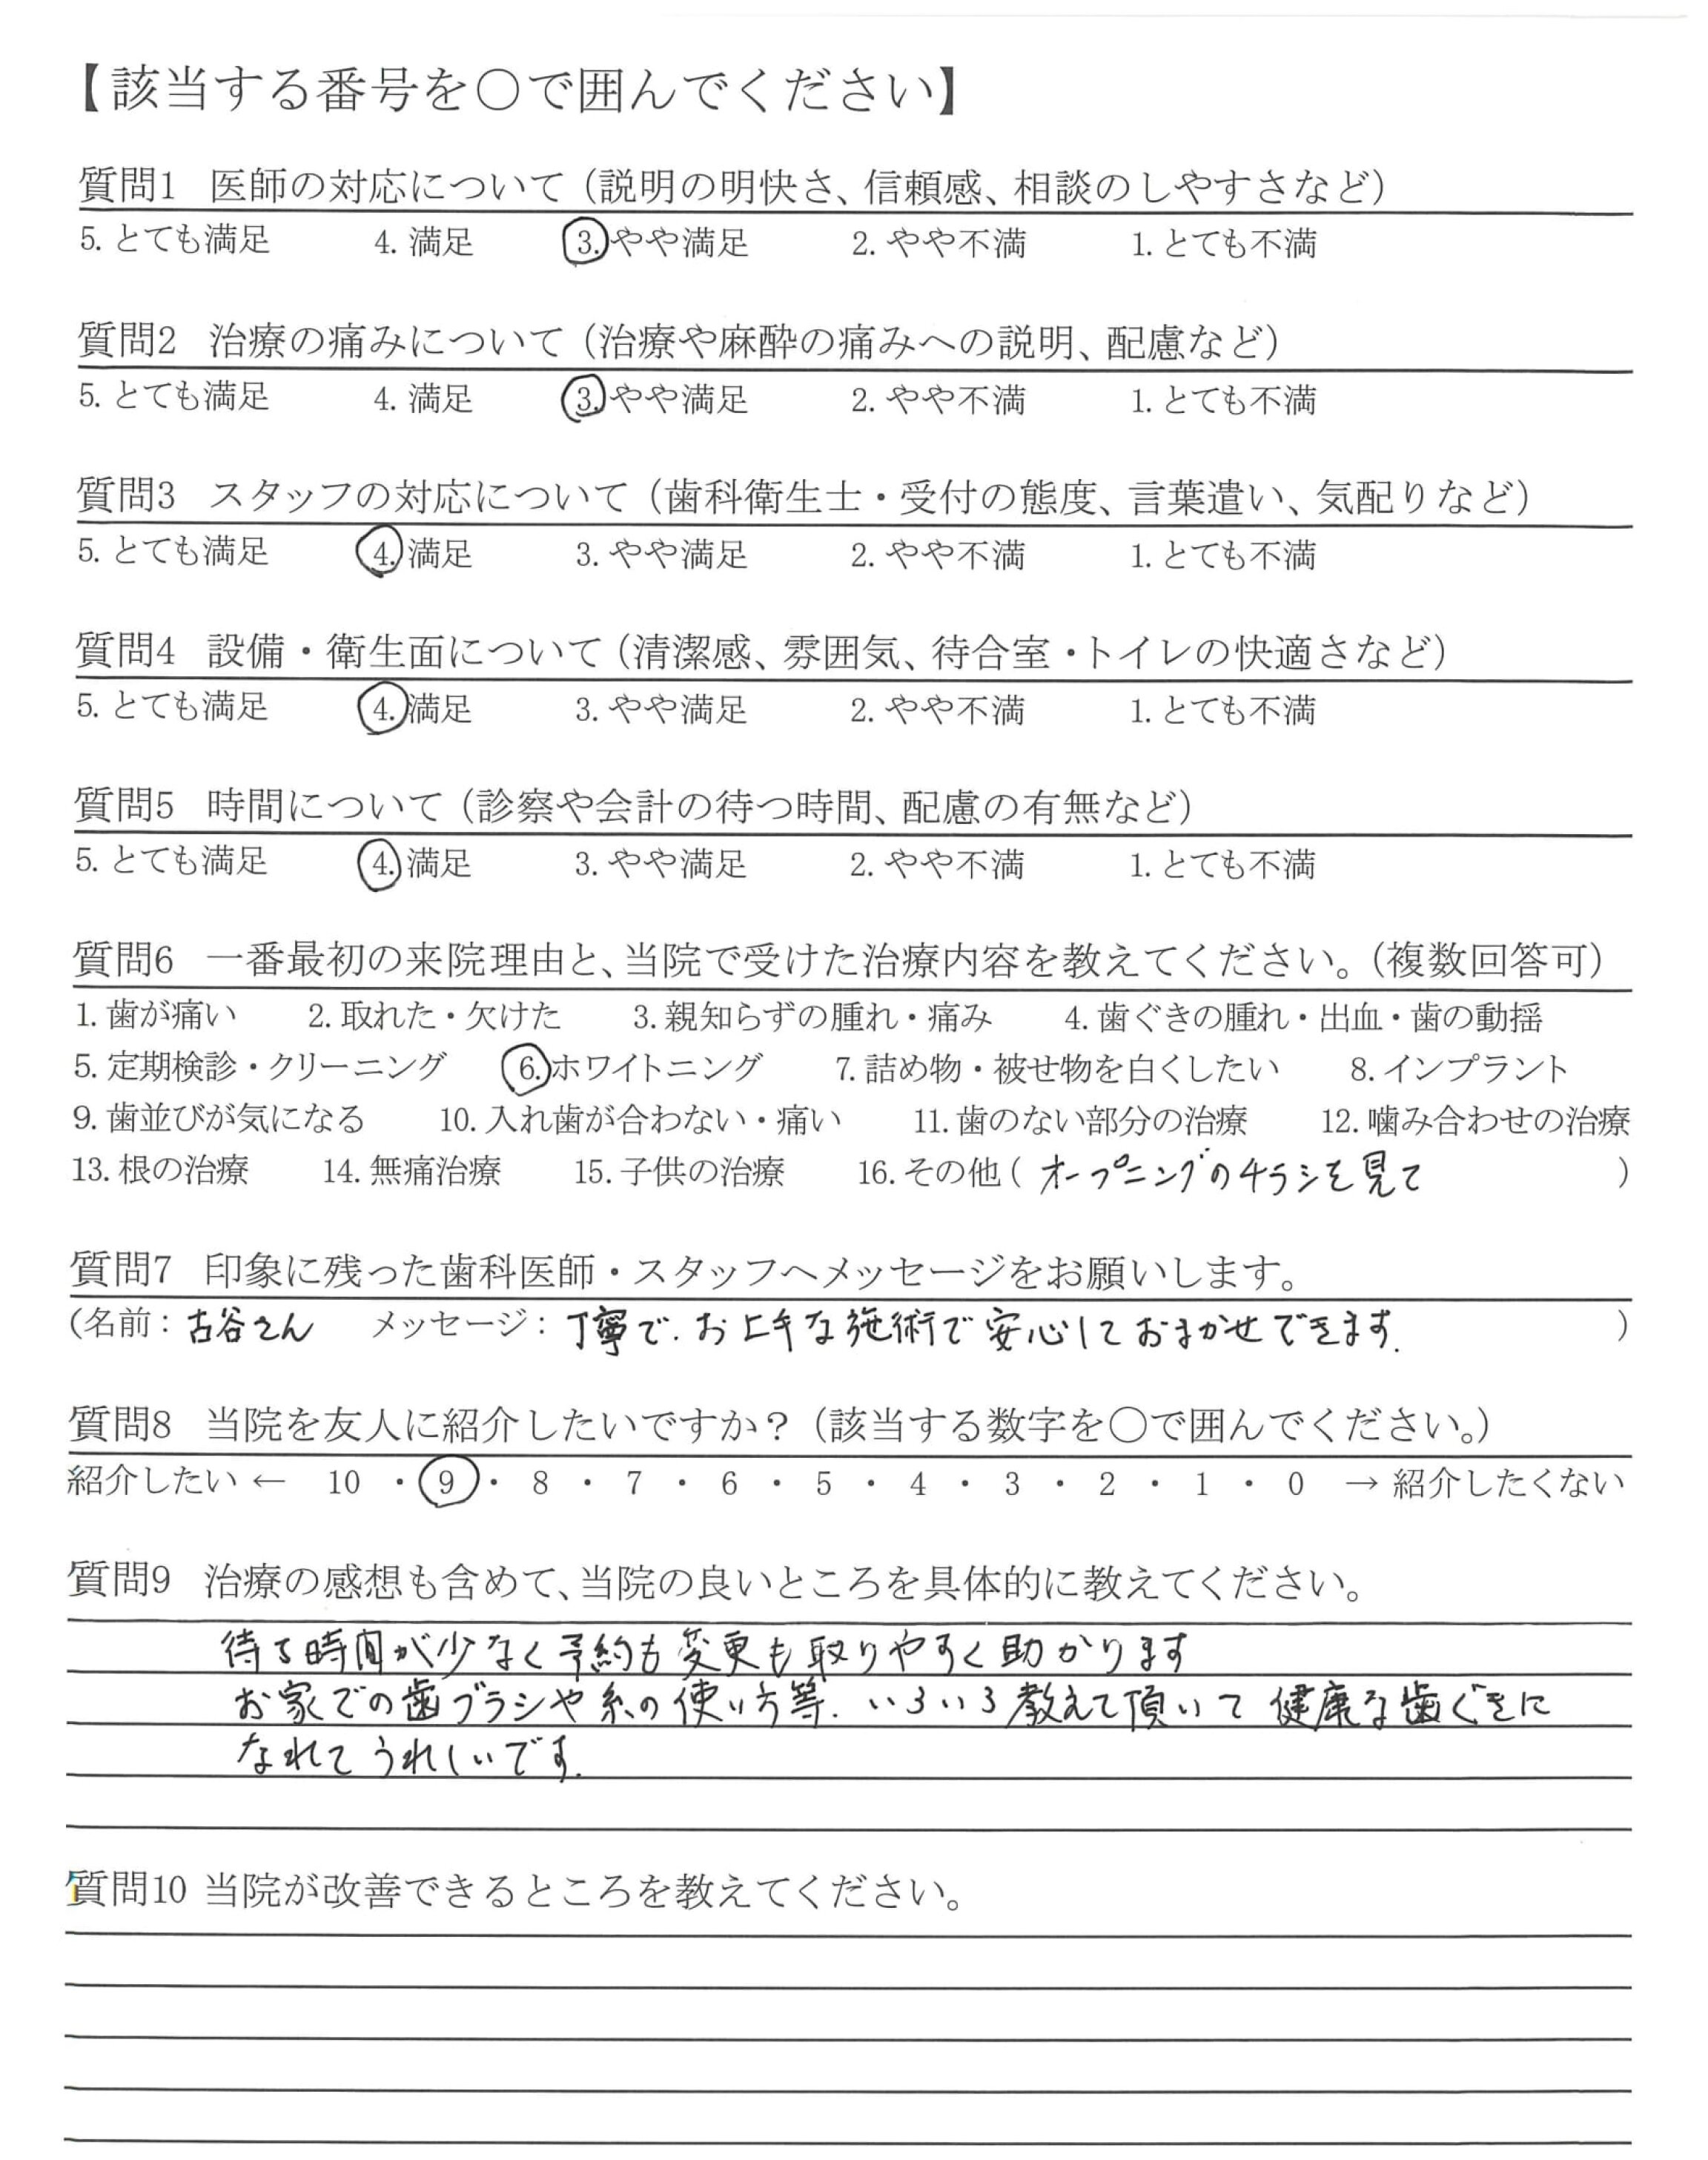 【該当する番号を〇で囲んでください】
質問1 医師の対応について（説明の明快さ、信頼感、相談のしやすさなど）
5. とても満足 4. 満足 3. やや満足 2. やや不満 1. とても不満
質問2 治療の痛みについて（治療や麻酔の痛みへの説明、配慮など）
5. とても満足 4. 満足 3. やや満足 2. やや不満 1. とても不満
質問3 スタッフの対応について（歯科衛生士・受付の態度、言葉遣い、気配りなど）
5. とても満足 4. 満足 3. やや満足 2. やや不満 1. とても不満
質問4 設備・衛生面について（清潔感、雰囲気、待合室・トイレの快適さなど）
5. とても満足 4. 満足 3. やや満足 2. やや不満 1. とても不満
質問5 時間について（診察や会計の待つ時間、配慮の有無など）
5. とても満足 4. 満足 3. やや満足 2. やや不満 1. とても不満
質問6 一番最初の来院理由と、当院で受けた治療内容を教えてください。（複数回答可）
1. 歯が痛い 2. 取れた・欠けた 3. 親知らずの腫れ・痛み 4. 歯ぐきの腫れ・出血・歯の動揺
5. 定期検診・クリーニング 6. ホワイトニング 7. 詰め物・被せ物を白くしたい 8. インプラント
9. 歯並びが気になる 10. 入れ歯が合わない・痛い 11. 歯のない部分の治療 12. 噛み合わせの治療
13. 根の治療 14. 無痛治療 15. 子供の治療 16. その他（オープニングのチラシを見て）
質問7 印象に残った歯科医師・スタッフへメッセージをお願いします。
（名前：古谷さん メッセージ：丁寧で、お上手な施術で安心しておまかせできます.）
質問8 当院を友人に紹介したいですか？（該当する数字を〇で囲んでください。）
紹介したい ← 10 ・ 9 ・ 8 ・ 7 ・ 6 ・ 5 ・ 4 ・ 3 ・ 2 ・ 1 ・ 0 → 紹介したくない
質問9 治療の感想も含めて、当院の良いところを具体的に教えてください。
待る時間が少なく予約も変更も取りやすく助かります
お家での歯ブラシや糸の使い方等、いろいろ教えて頂いて健康な歯ぐきに
なれてうれしいです.
質問10 当院が改善できるところを教えてください。